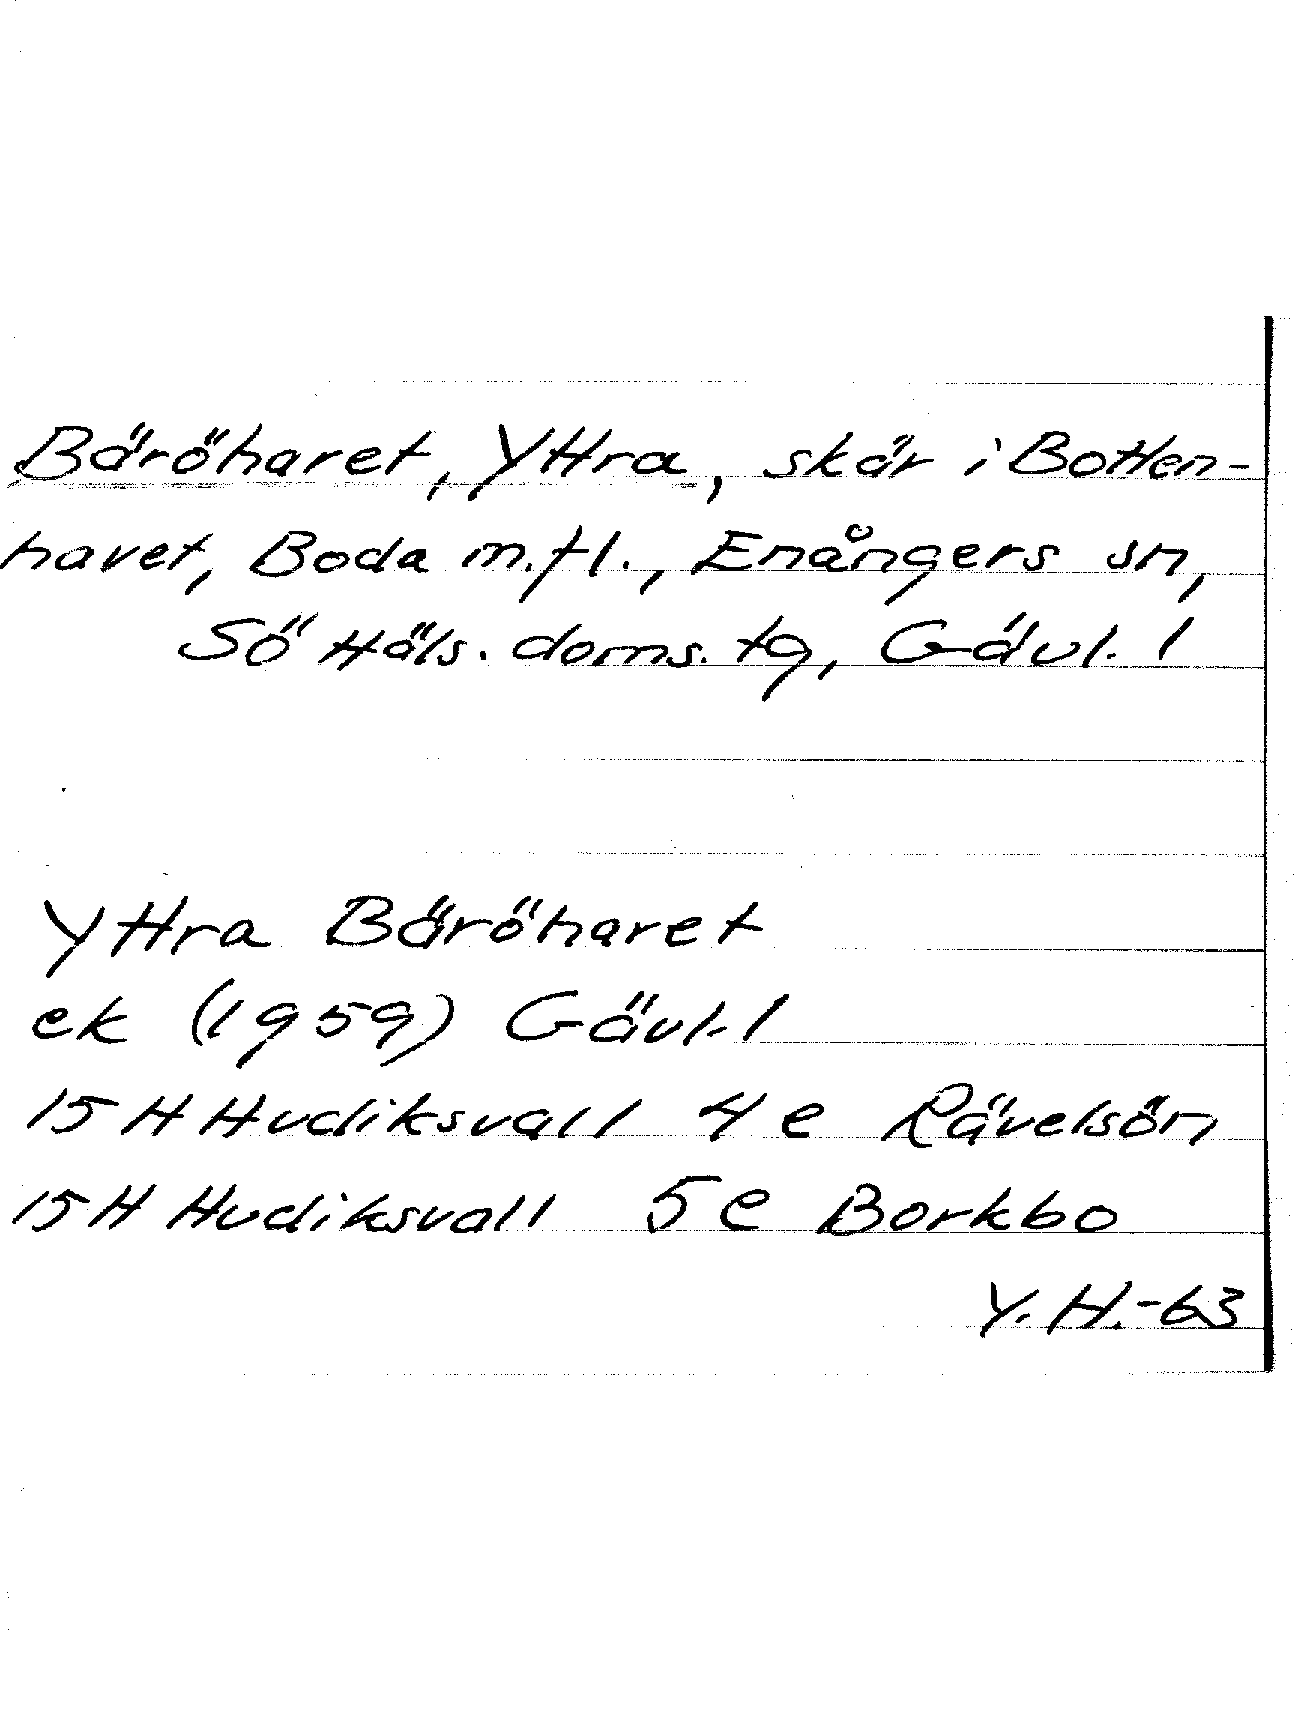 Bäröharet, Yttra, skär i Botten-
havet, Boda m.fl., Enångers sn,
Sö Häls. doms. tg, Gävl. l
Yttra Bäröharet
ek (1959) Gävl. l
15 H Hudiksvall 4 e Rävelsön
15 H Hudiksvall 5 e Borkbo
Y. H. -63